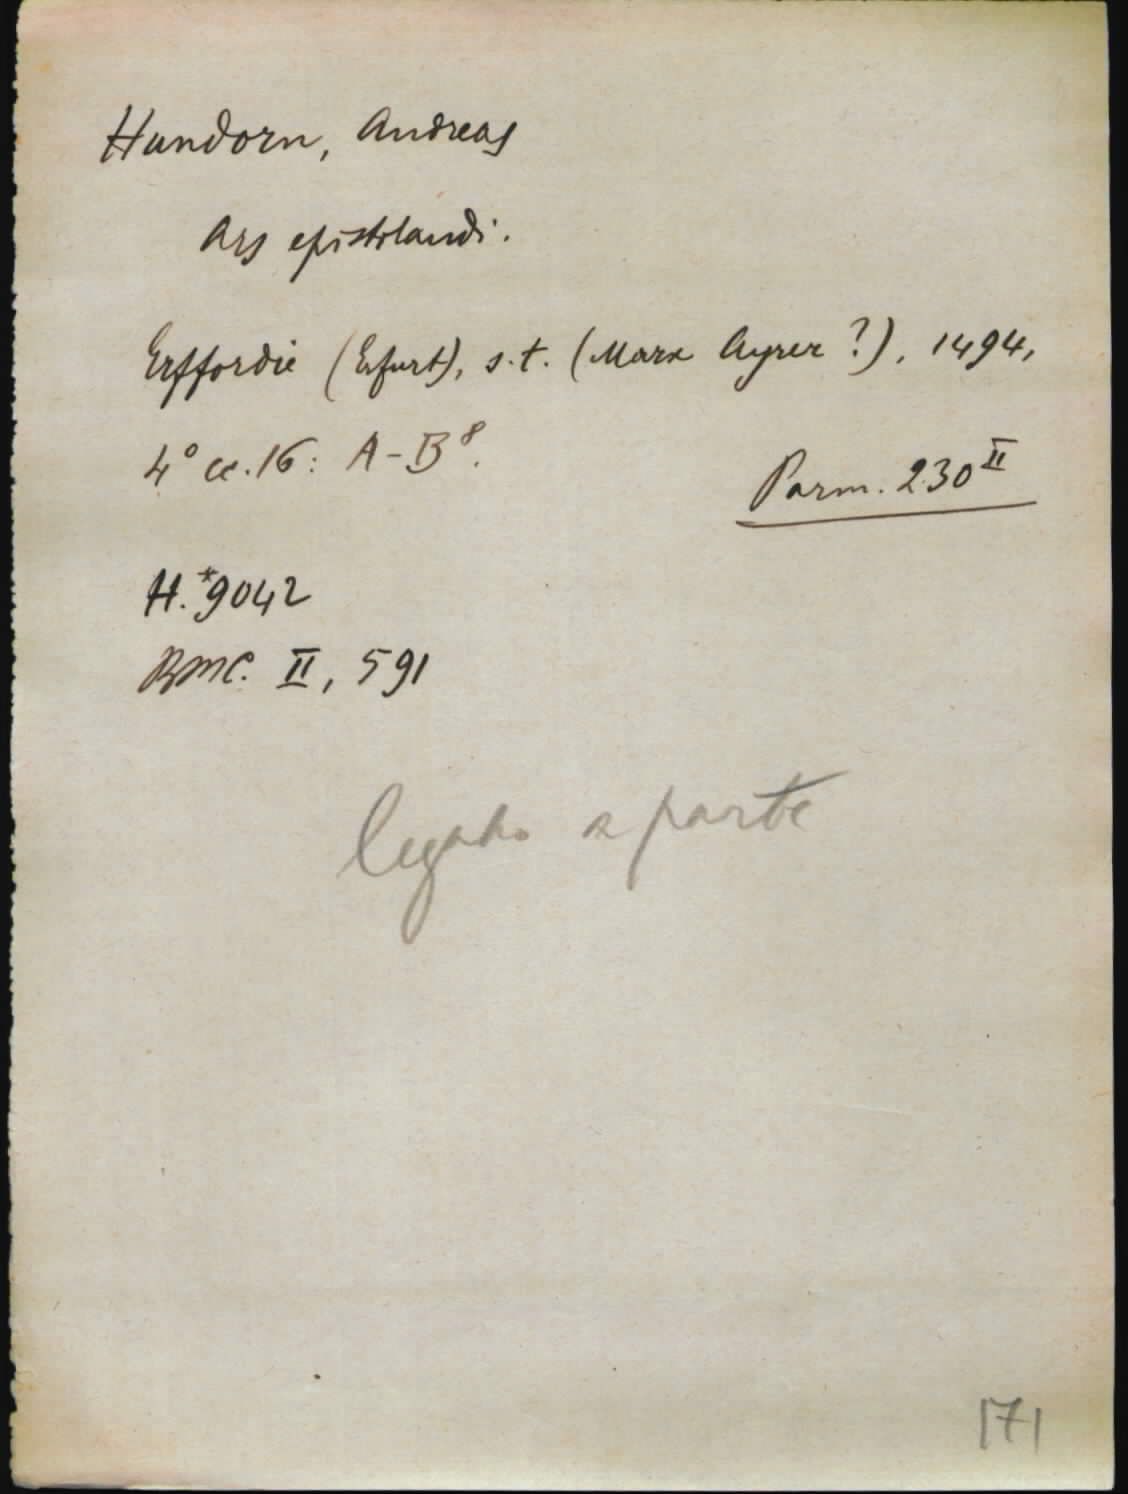 Hundorn, Andreas
Ars epistolandi.
Erffordie (Erfurt), s.t. (Marx Ayrer ?), 1494,
4° cc. 16: A-B⁸.
Parm. 230 II
H. *9042
BMC. II, 591
legato a parte
171